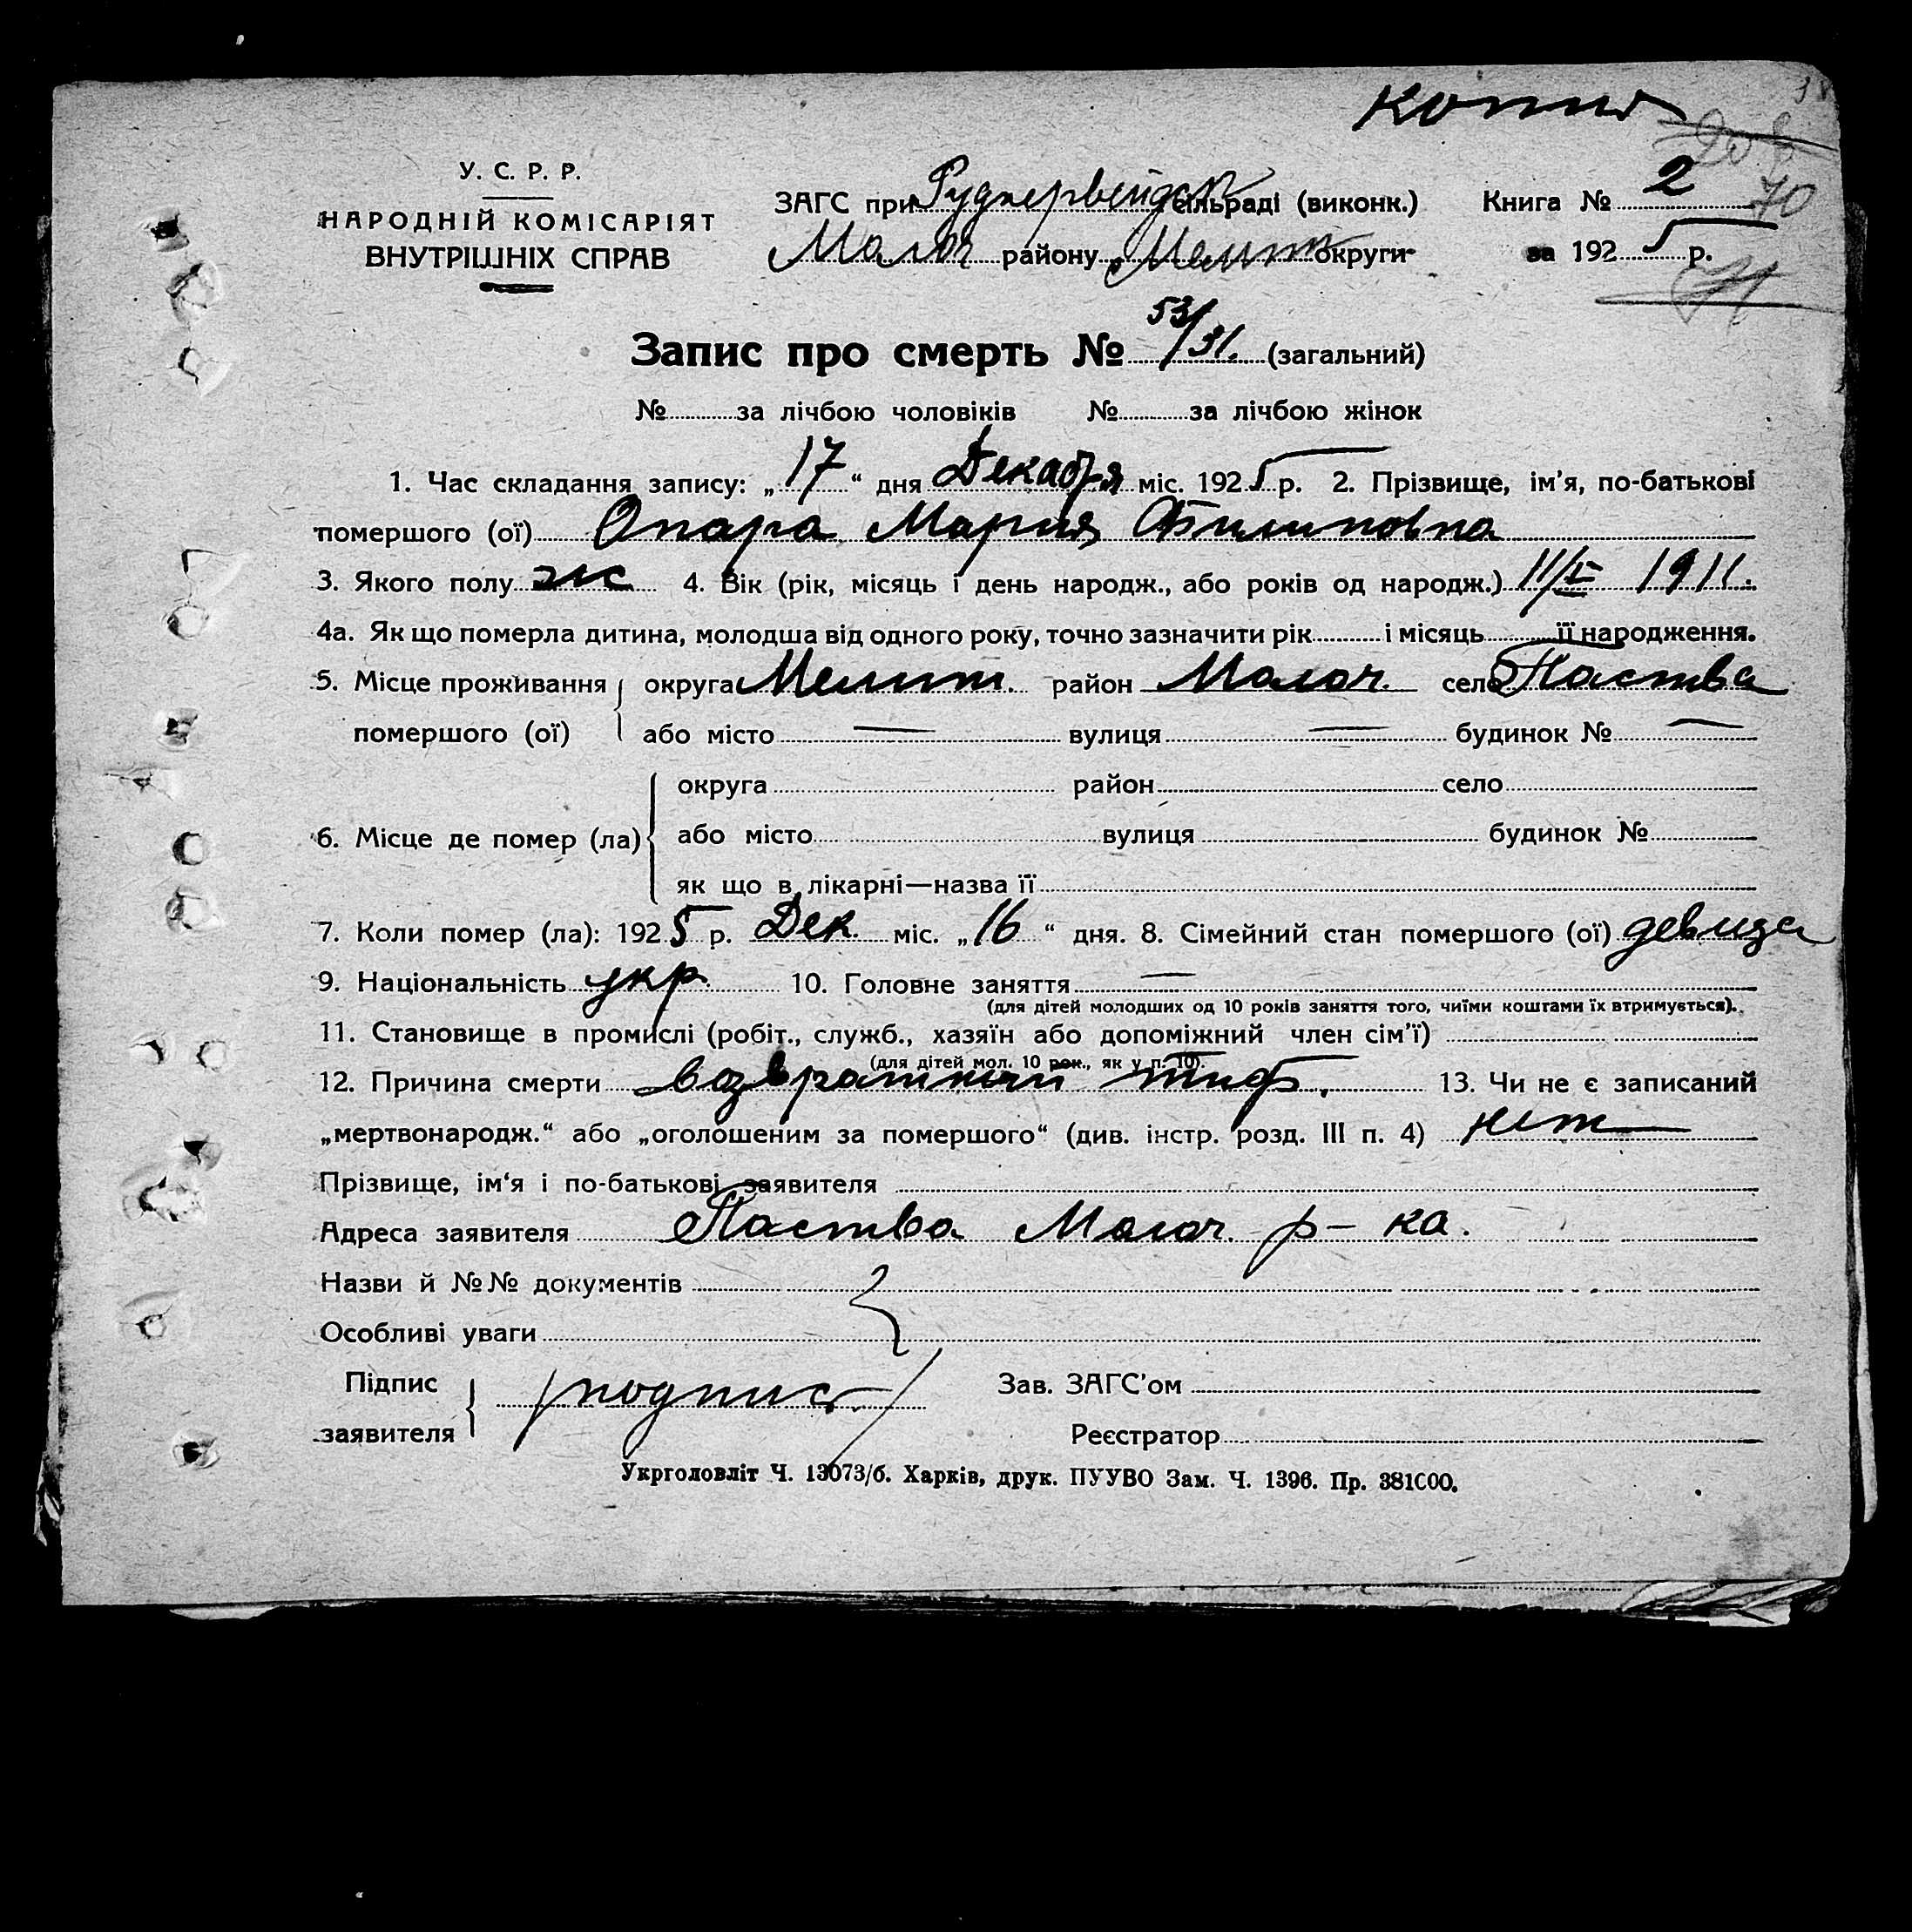 Копия
У. С. Р. Р.
НАРОДНІЙ КОМІСАРІЯТ
ВНУТРІШНІХ СПРАВ
ЗАГС при Руднервейдск сільраді (виконк.) Книга № 2
70
Молоч району Мелит округи за 1925 р.
71
Запис про смерть № 53/31. (загальний)
№ за лічбою чоловіків № за лічбою жінок
1. Час складання запису: „17“ дня Декабря міс. 1925 р. 2. Прізвище, ім'я, по-батькові
помершого (ої) Опара Мария Филиповна
3. Якого полу ж 4. Вік (рік, місяць і день народж., або років од народж.) 1911.
4а. Як що померла дитина, молодша від одного року, точно зазначити рік і місяць її народження.
5. Місце проживання округа Мелит. район Молоч. село Паства
помершого (ої) або місто — вулиця — будинок № —
округа район село
6. Місце де помер (ла) або місто вулиця будинок №
як що в лікарні—назва її
7. Коли помер (ла): 1925 р. Дек. міс. „16“ дня. 8. Сімейний стан помершого (ої) девица
9. Національність укр. 10. Головне заняття —
(для дітей молодших од 10 років заняття того, чиїми коштами їх втримується).
11. Становище в промислі (робіт., служб., хазяїн або допоміжний член сім'ї)
(для дітей мол. 10 рок., як у п. 10).
12. Причина смерти возвратный тиф. 13. Чи не є записаний
„мертвонародж.“ або „оголошеним за помершого“ (див. інстр. розд. III п. 4) нет
Прізвище, ім'я і по-батькові заявителя
Адреса заявителя Паства Молоч. р-ка.
Назви й №№ документів
Особливі уваги
Підпис
заявителя /подпись/
Зав. ЗАГС'ом
Реєстратор
Укрголовліт Ч. 13073/б. Харків, друк. ПУУВО Зам. Ч. 1396. Пр. 381000.